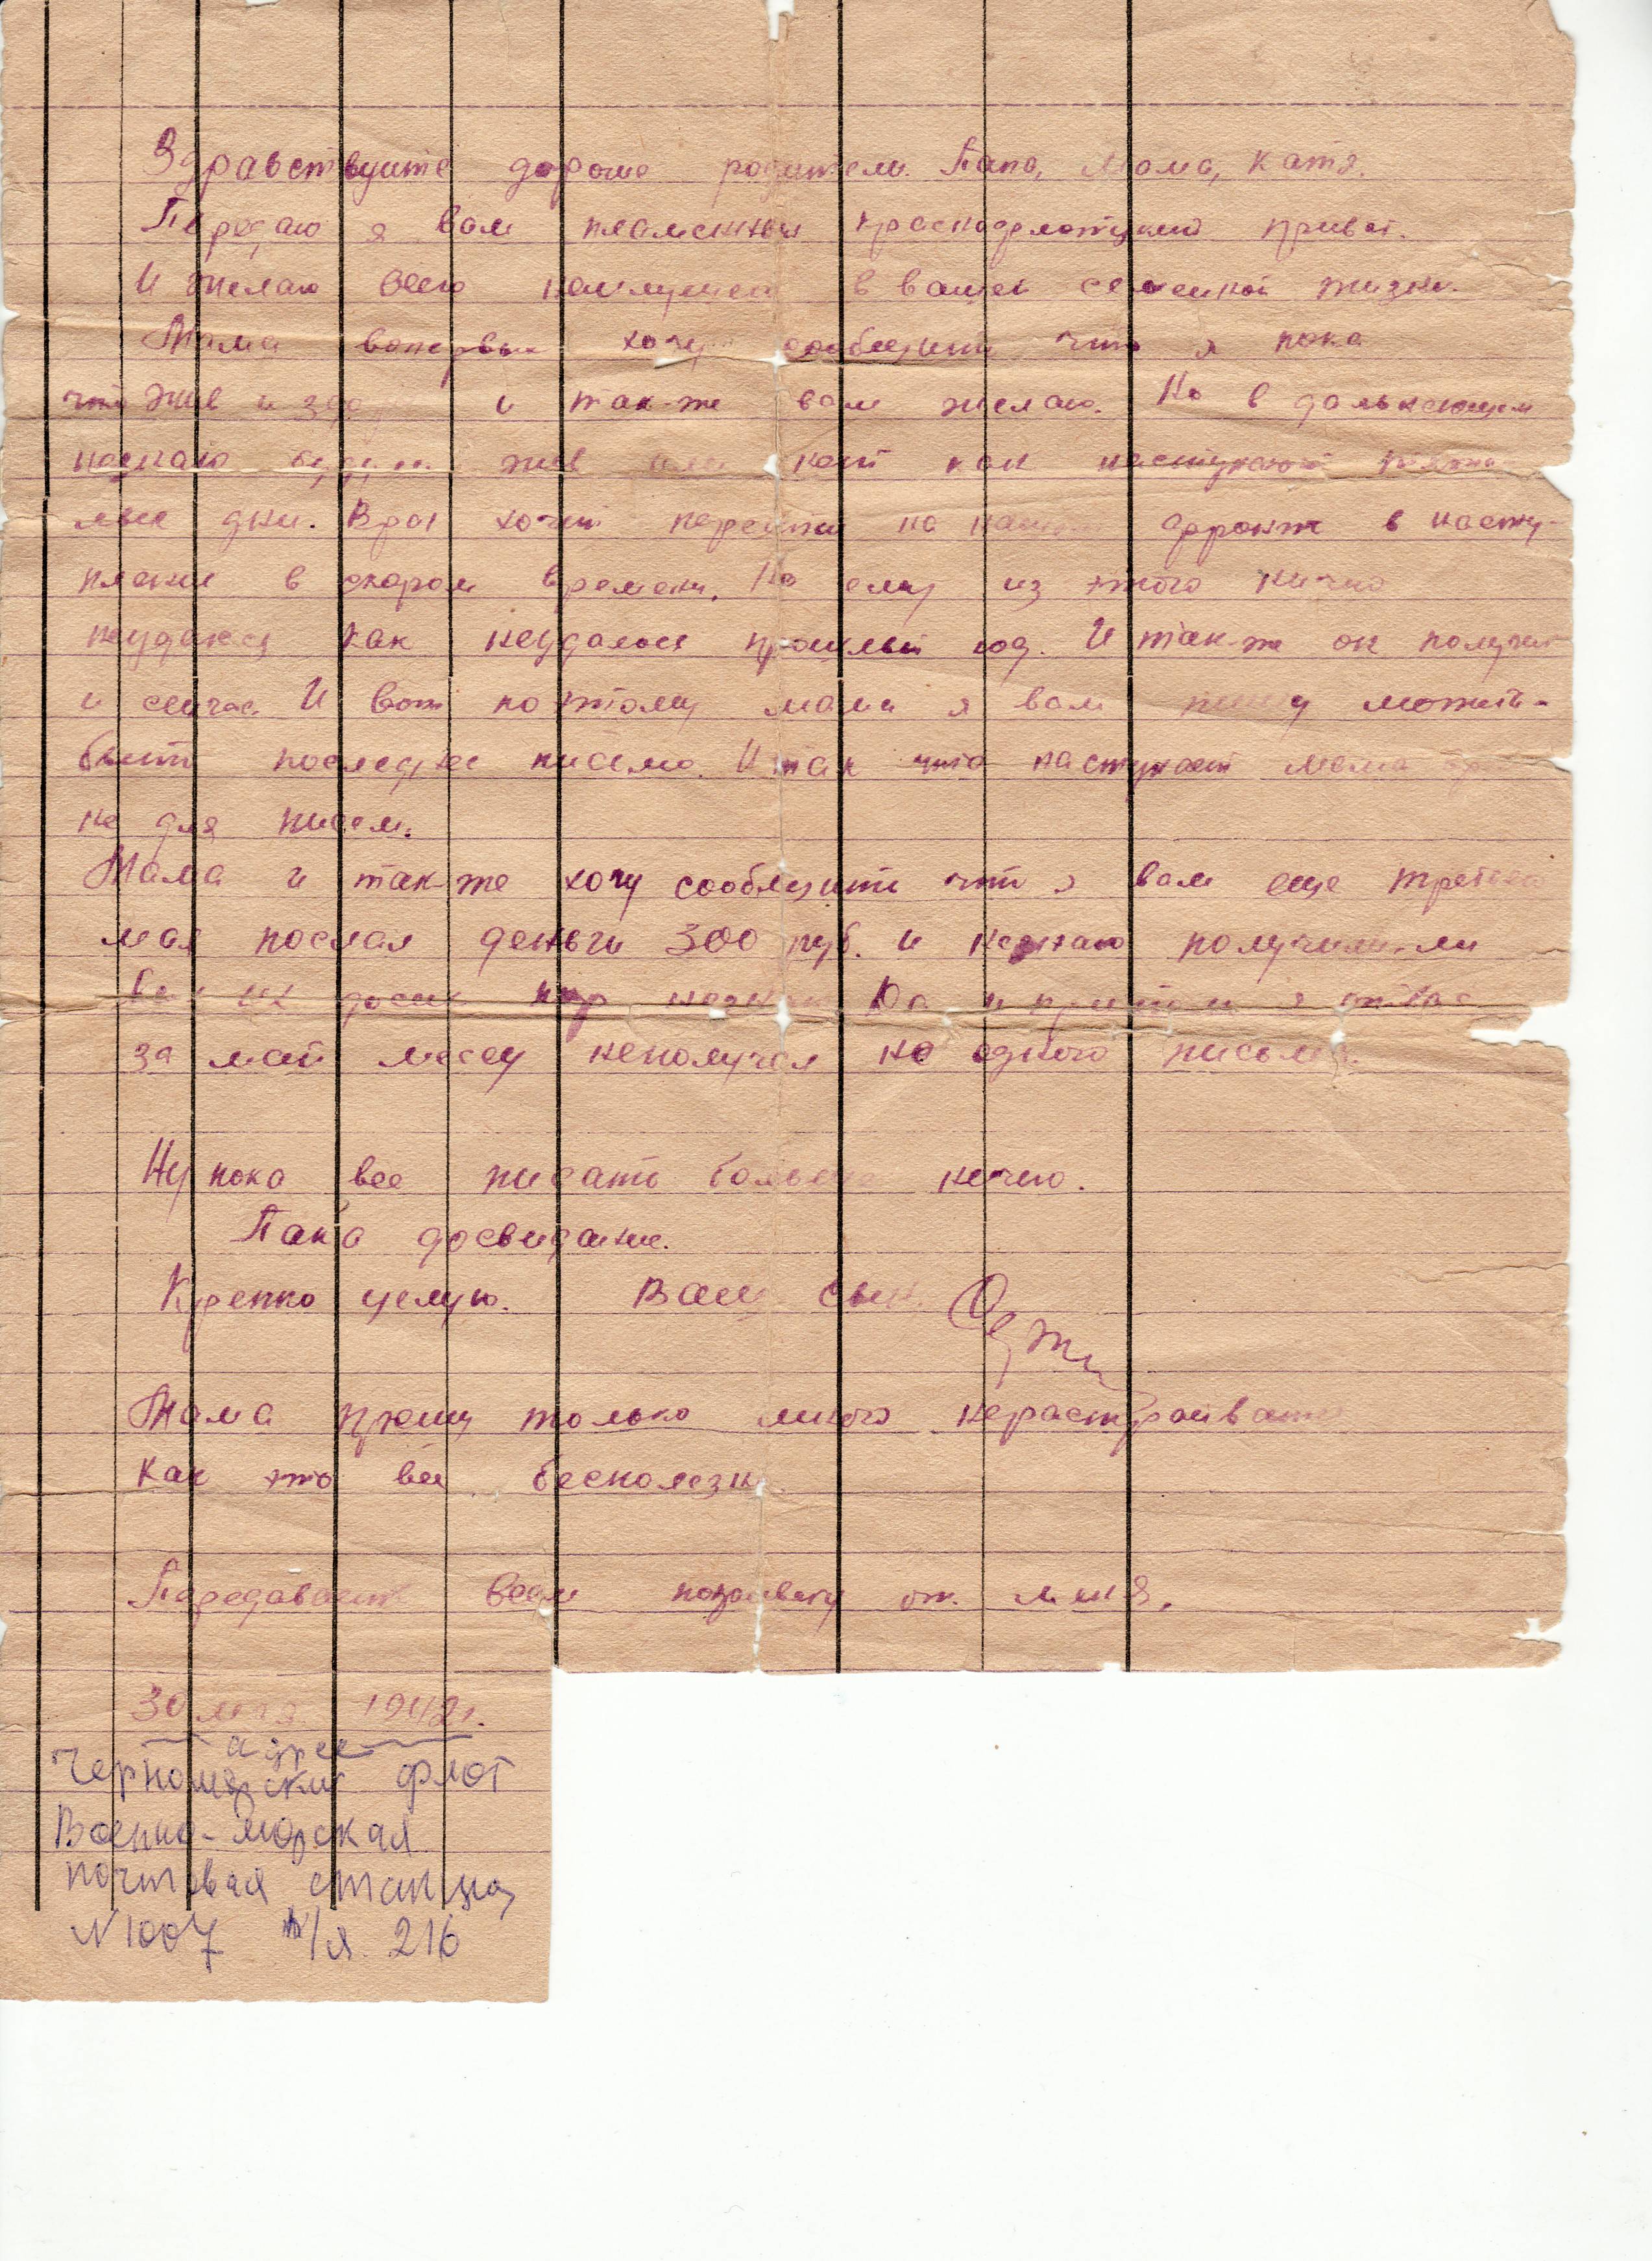 Здравствуите дорогие родители. Папа, Мама, Катя.
Передаю я вам пламенный краснофлотский привет.
И желаю всего наилучшего в вашей семейной жизни.
Мама вопервых хочу сообщить что я пока
что жив и здоров и так-же вам желаю. Но в дальнеющем
незнаю буду ли жив или нет как наступают
дни. Враг хочит перейти на нашем фронте в насту-
пление в скором времени. Но ему из этого ничево
неудаися как неудалося прошлый год. И так-же он получит
и сейчас. И вот поэтому мама я вам пишу можить-
быть последнее письмо. И так что наступает мама
не для писем.
Мама и так-же хочу сообщить что я вам еще
мая послал деньги 300 руб. и незнаю получили-ли
вы их досих пор незнаю. Да и я от вас
за май месец неполучал не одного письма.
Ну пока все писать больше нечего.
Пака досвидание.
Крепко целую. Ваш сын.
Мама прошу только много нерастраивать
как это все бесполезно.
Передавает всем по привету от меня.
30 мая 1942 г.
адрес
Черноморский флот
Военно-морская
почтовая станция
N 1007 п/я. 216